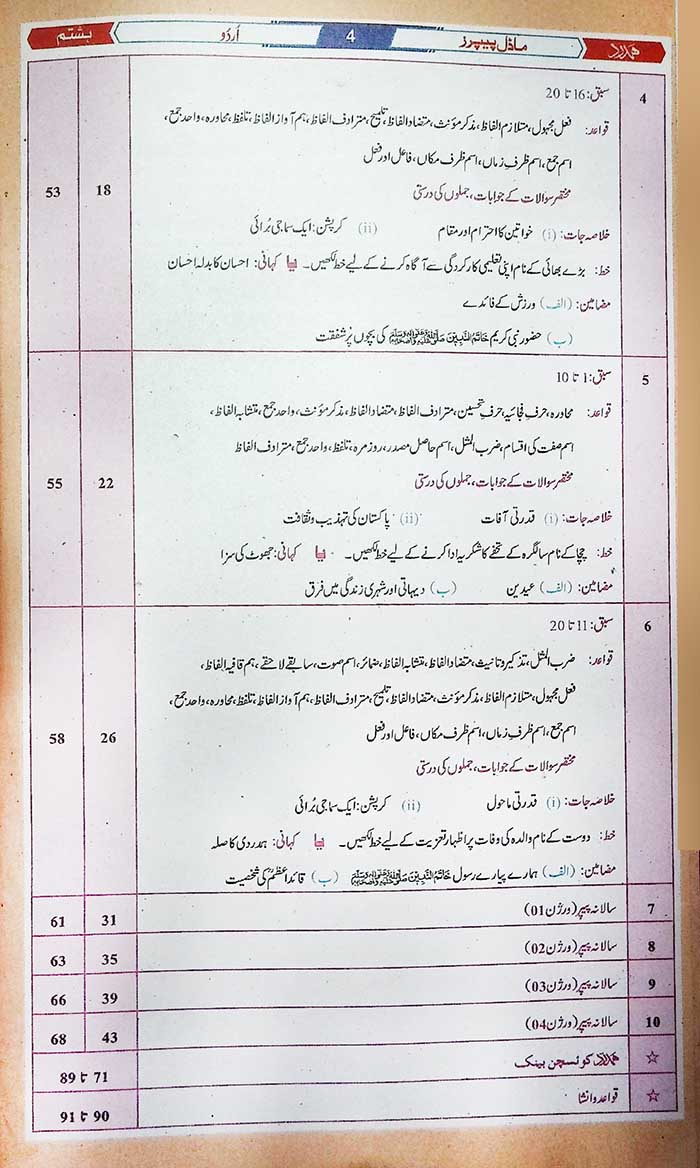 ہمدرد ماڈل پیپرز 4 اُردُو ہشتم
4 سبق: 16 تا 20 18 53
قواعد: فعل مجہول، متلازم الفاظ، مذکر مؤنث، متضاد الفاظ، تلمیح، مترادف الفاظ، ہم آواز الفاظ، تلفظ، محاورہ، واحد جمع،
اسم جمع، اسم ظرفِ زماں، اسم ظرف مکاں، فاعل اور فعل
مختصر سوالات کے جوابات، جملوں کی درستی
خلاصہ جات: (i) خواتین کا احترام اور مقام (ii) کرپشن: ایک سماجی بُرائی
خط: بڑے بھائی کے نام اپنی تعلیمی کارکردگی سے آگاہ کرنے کے لیے خط لکھیں۔ یا کہانی: احسان کا بدلہ احسان
مضامین: (الف) ورزش کے فائدے
(ب) حضور نبی کریم خَاتَمُ النَّبِیّٖنَ صَلَّی اللّٰہُ عَلَیْہِ وَعَلٰی اٰلِہٖ وَاَصْحَابِہٖ وَسَلَّمَ کی بچوں پر شفقت
5 سبق: 1 تا 10 22 55
قواعد: محاورہ، حرفِ فجائیہ، حرفِ تحسین، مترادف الفاظ، متضاد الفاظ، مذکر مؤنث، واحد جمع، متشابہ الفاظ،
اسم صفت کی اقسام، ضرب المثل، اسم حاصل مصدر، روزمرہ، تلفظ، واحد جمع، مترادف الفاظ
مختصر سوالات کے جوابات، جملوں کی درستی
خلاصہ جات: (i) قدرتی آفات (ii) پاکستان کی تہذیب وثقافت
خط: چچا کے نام سالگرہ کے تحفے کا شکریہ ادا کرنے کے لیے خط لکھیں۔ یا کہانی: جھوٹ کی سزا
مضامین: (الف) عیدین (ب) دیہاتی اور شہری زندگی میں فرق
6 سبق: 11 تا 20 26 58
قواعد: ضرب المثل، تذکیر و تانیث، متضاد الفاظ، متشابہ الفاظ، ضمائر، اسم صوت، سابقے لاحقے، ہم قافیہ الفاظ،
فعل مجہول، متلازم الفاظ، مذکر مؤنث، متضاد الفاظ، تلمیح، مترادف الفاظ، ہم آواز الفاظ، تلفظ، محاورہ، واحد جمع،
اسم جمع، اسم ظرفِ زماں، اسم ظرف مکاں، فاعل اور فعل
مختصر سوالات کے جوابات، جملوں کی درستی
خلاصہ جات: (i) قدرتی ماحول (ii) کرپشن: ایک سماجی بُرائی
خط: دوست کے نام والدہ کی وفات پر اظہارِ تعزیت کے لیے خط لکھیں۔ یا کہانی: ہمدردی کا صلہ
مضامین: (الف) ہمارے پیارے رسول خَاتَمُ النَّبِیّٖنَ صَلَّی اللّٰہُ عَلَیْہِ وَعَلٰی اٰلِہٖ وَاَصْحَابِہٖ وَسَلَّمَ (ب) قائداعظمؒ کی شخصیت
7 سالانہ پیپر (ورژن 01) 31 61
8 سالانہ پیپر (ورژن 02) 35 63
9 سالانہ پیپر (ورژن 03) 39 66
10 سالانہ پیپر (ورژن 04) 43 68
☆ ہمدرد کوئسچن بینک 71 تا 89
☆ قواعد و انشا 90 تا 91